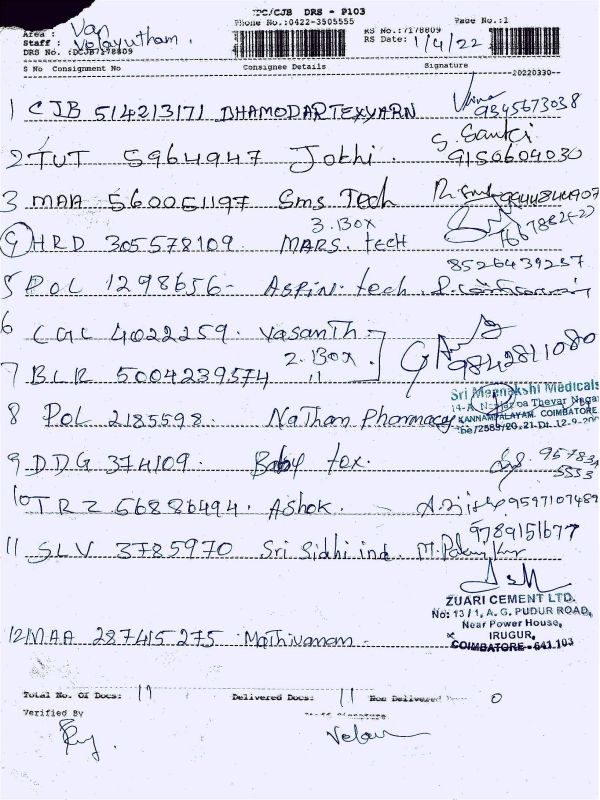 TPC/CJB DRS - P103
Phone No.:0422-3505555
Page No.:1
Area : Van
Staff : Velayutham.
DRS No. :DCJB7178809
RS No.:7178809
RS Date: 1/4/22
S No Consignment No Consignee Details Signature
20220330
1 CJB 514213171 DHAMODAR TEX YARN 9345673038
2 TUT 5964947 Jothi. S. Sanki 9150604030
3 MAA 560061197 Sms Tech
3. Box
4 HRD 305578109. MARS. tech
8526439237
5 POL 1298656- Aspin. tech.
6 CGL 4022259. Vasanth
2. Box 9842811080
7 BLR 5004239574 "
Sri Meenakshi Medicals
KANNAMPALAYAM, COIMBATORE
8 POL 2185598 Nathan Pharmacy
9 DDG 374109. Baby tex. 95783
5553
10 TRZ 56886494. Ashok. 9597107489
9789151677
11 SLV 3785970 Sri Sidhi ind.
ZUARI CEMENT LTD.
No: 13 / 1, A. G. PUDUR ROAD,
Near Power House,
IRUGUR,
COIMBATORE - 641 103
12 MAA 287415275 Mathivanan -
Total No. Of Docs: 11 Delivered Docs: 11 Non Delivered 0
Verified By Signature
Velau